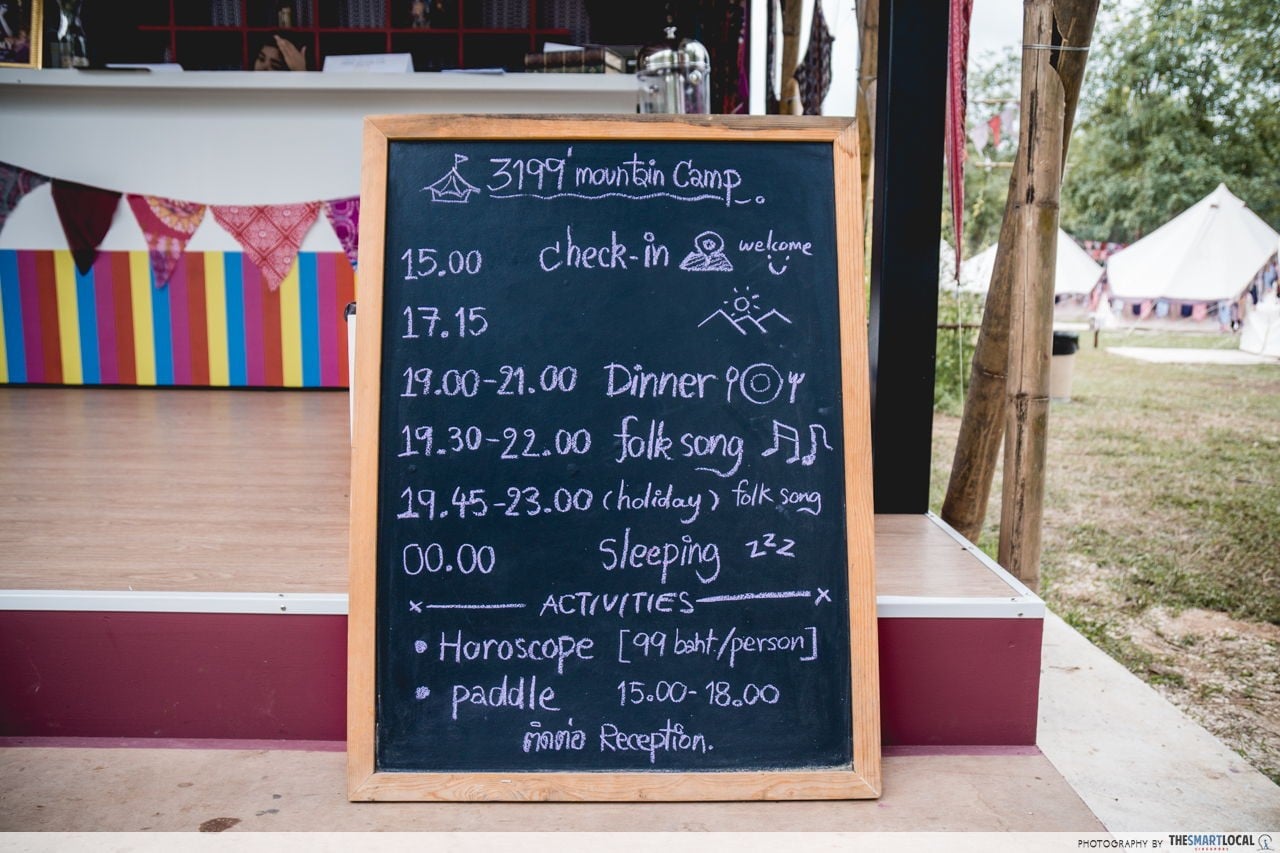 3199' mountain Camp
15.00 check-in welcome
17.15
19.00-21.00 Dinner
19.30-22.00 folk song
19.45-23.00 (holiday) folk song
00.00 Sleeping zzz
x ACTIVITIES x
• Horoscope [99 baht/person]
• paddle 15.00-18.00
ติดต่อ Reception.
PHOTOGRAPHY BY THESMARTLOCAL
SINGAPORE